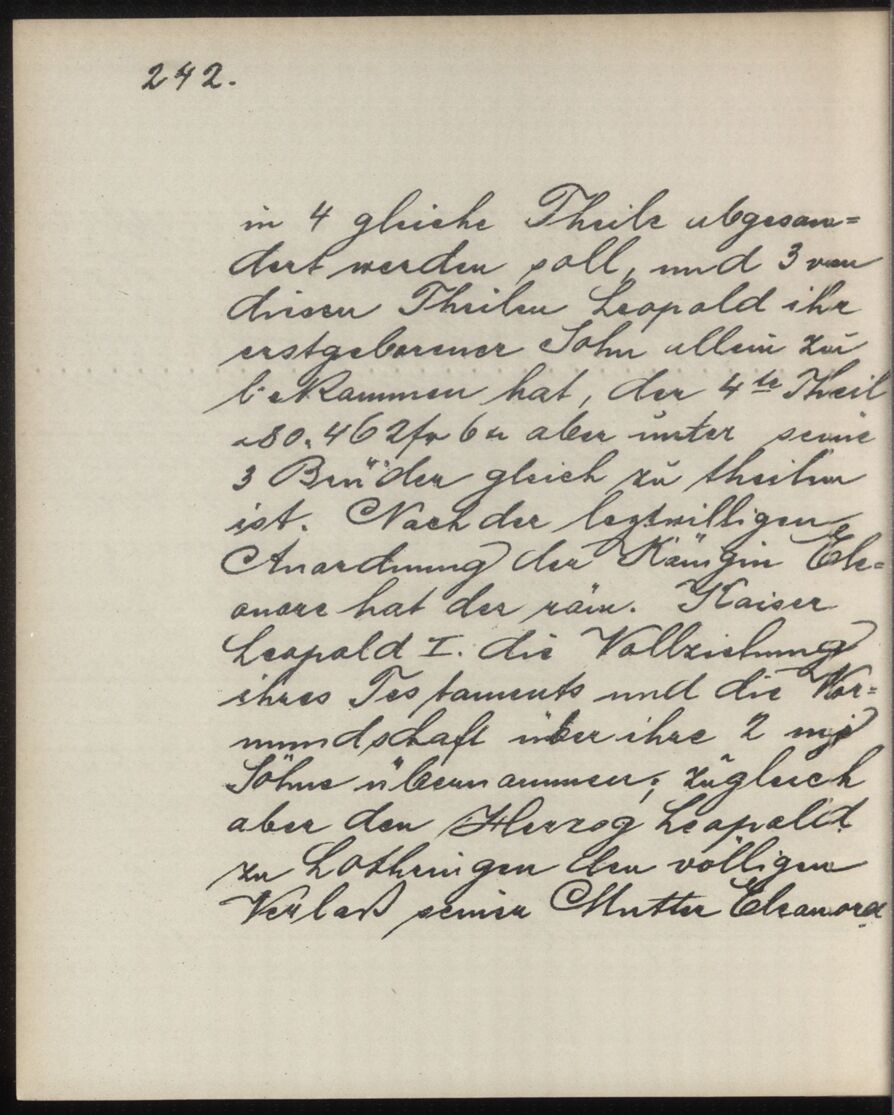 242.
in 4 gleiche Theile abgeson=
dert werden soll, und 3 von
diesen Theilen Leopold ihr
erstgeborener Sohn allein zu
bekommen hat, der 4te Theil
a 80.462 fr 6 x aber unter seine
3 Brüder gleich zu theilen
ist. Nach der leztwilligen
Anordnung der Königin Ele=
onore hat der röm. Kaiser
Leopold I. die Vollziehung
ihres Testaments und die Vor=
mundschaft über ihre 2 mj
Söhne übernommen; zugleich
aber den Herzog Leopold
zu Lothringen den völligen
Verlaß seiner Mutter Eleonora